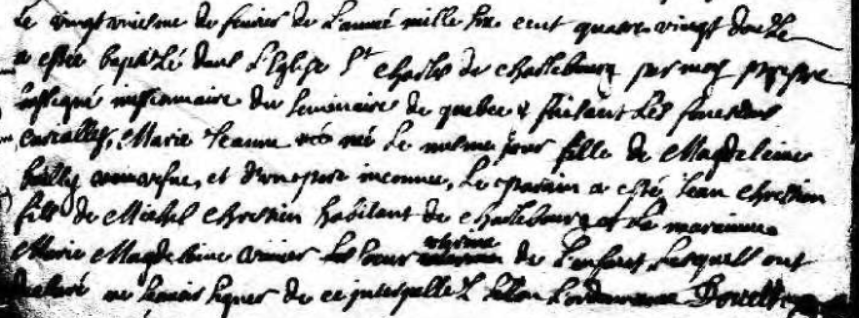 Le vingt troiesme de feuvrier de l'année mille six cent quatre vingt douze
a esté baptisé dans l'Eglise St charles de charlebourg par moy prestre
soussigné missionnaire du seminaire de quebec & faisant les fonctions
curialles, Marie Jeanne née le mesme jour fille de Magdeleine
et d'un pere inconnu, Le parain a esté Jean chrestien
fils de Michel chrestien habitant de charlebourg et la marainne
Marie Magdeleine de l'enfant lesquels ont
declaré ne sçavoir signer de ce interpellez selon l'ordonnance